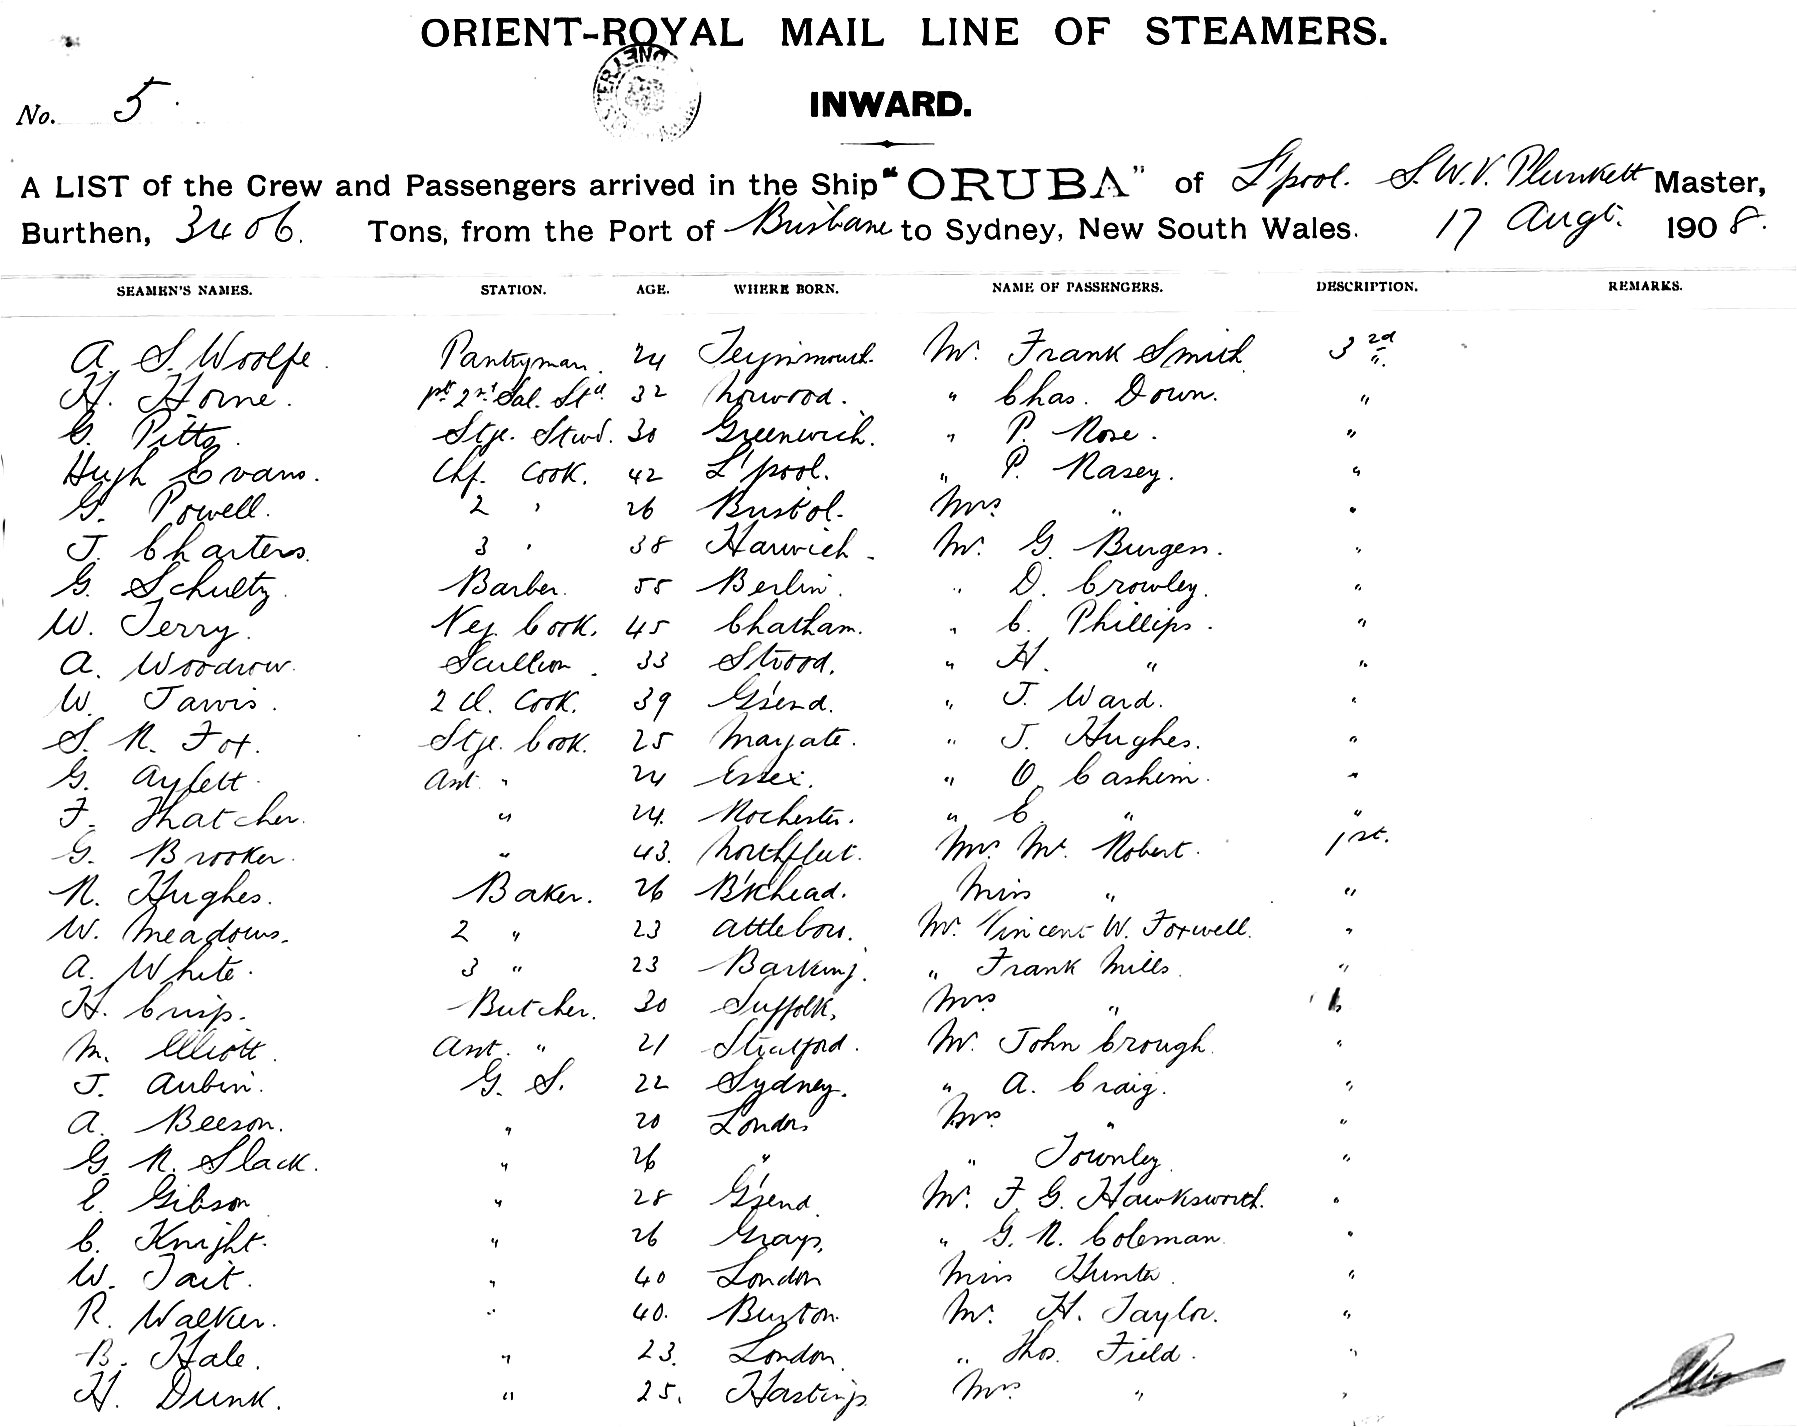 ORIENT-ROYAL MAIL LINE OF STEAMERS.
No. 5. INWARD.
A LIST of the Crew and Passengers arrived in the Ship "ORUBA" of L'pool. S. W. V. Plunkett Master,
Burthen, 3406. Tons, from the Port of Brisbane to Sydney, New South Wales. 17 Augt. 1908.
SEAMEN'S NAMES. STATION. AGE. WHERE BORN. NAME OF PASSENGERS. DESCRIPTION. REMARKS.
A. S. Woolfe. Pantryman. 24 Teignmouth. Mr. Frank Smith 3rd
H. Horne. 32 Norwood. " Chas. Down. "
G. Pitts. Stge. Stwd. 30 Greenwich. " P. Rose. "
Hugh Evans. Chf. Cook. 42 L'pool. " P. Rasey. "
G. Powell. 2 " 26 Bristol. Mrs. " "
J. Charters. 3 " 38 Harwich. Mr. G. Burgess. "
G. Schultz. Barber. 55 Berlin. " D. Crowley. "
W. Terry. Veg. Cook. 45 Chatham. " C. Phillips. "
A. Woodrow. Scullion. 33 Strood. " H. " "
W. Jarvis. 2 Cl. Cook. 39 G'send. " J. Ward. "
S. R. Fox. Stge. Cook. 25 Margate. " J. Hughes. "
G. Aylett. Asst. " 24 Essex. " O. Cashim. "
F. Thatcher. " 24. Rochester. " E. " "
G. Brooker. " 43. Northfleet. Mrs. Mc Robert. 1st.
R. Hughes. Baker. 26 B'khead. Miss " "
W. Meadows. 2 " 23 Attleboro. Mr. Vincent W. Forwell. "
A. White. 3 " 23 Barking. " Frank Mills. "
H. Crisp. Butcher. 30 Suffolk. Mrs " "
M. Elliott. Asst. " 21 Stratford. Mr. John Crough. "
J. Aubin. G. S. 22 Sydney. " A. Craig. "
A. Beeson. " 20 London Mrs. " "
G. R. Slack. " 26 " " Townley. "
E. Gibson " 28 G'send. Mr. F. G. Hawksworth. "
C. Knight. " 26 Grays. " G. R. Coleman. "
W. Tait. " 40 London Miss Hunter. "
R. Walker. " 40. Buxton. Mr. H. Taylor. "
B. Hale. " 23. London. " Thos. Field. "
H. Dunk. " 25. Hastings Mrs. " "